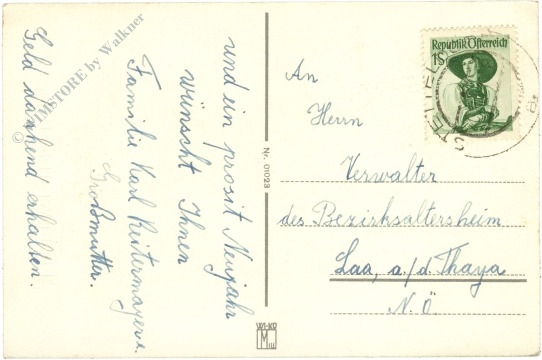 und ein prosit Neujahr
wünscht Ihnen
Familie Karl Reitermayer u.
Großmutter.
Geld dankend erhalten.
AMSTORE by Walkner
©
Nr. 01023
WI-KO
MILL
Republik Österreich
1S
An
Herrn
Verwalter
des Bezirksaltersheim
Laa, a./d. Thaya
N.Ö